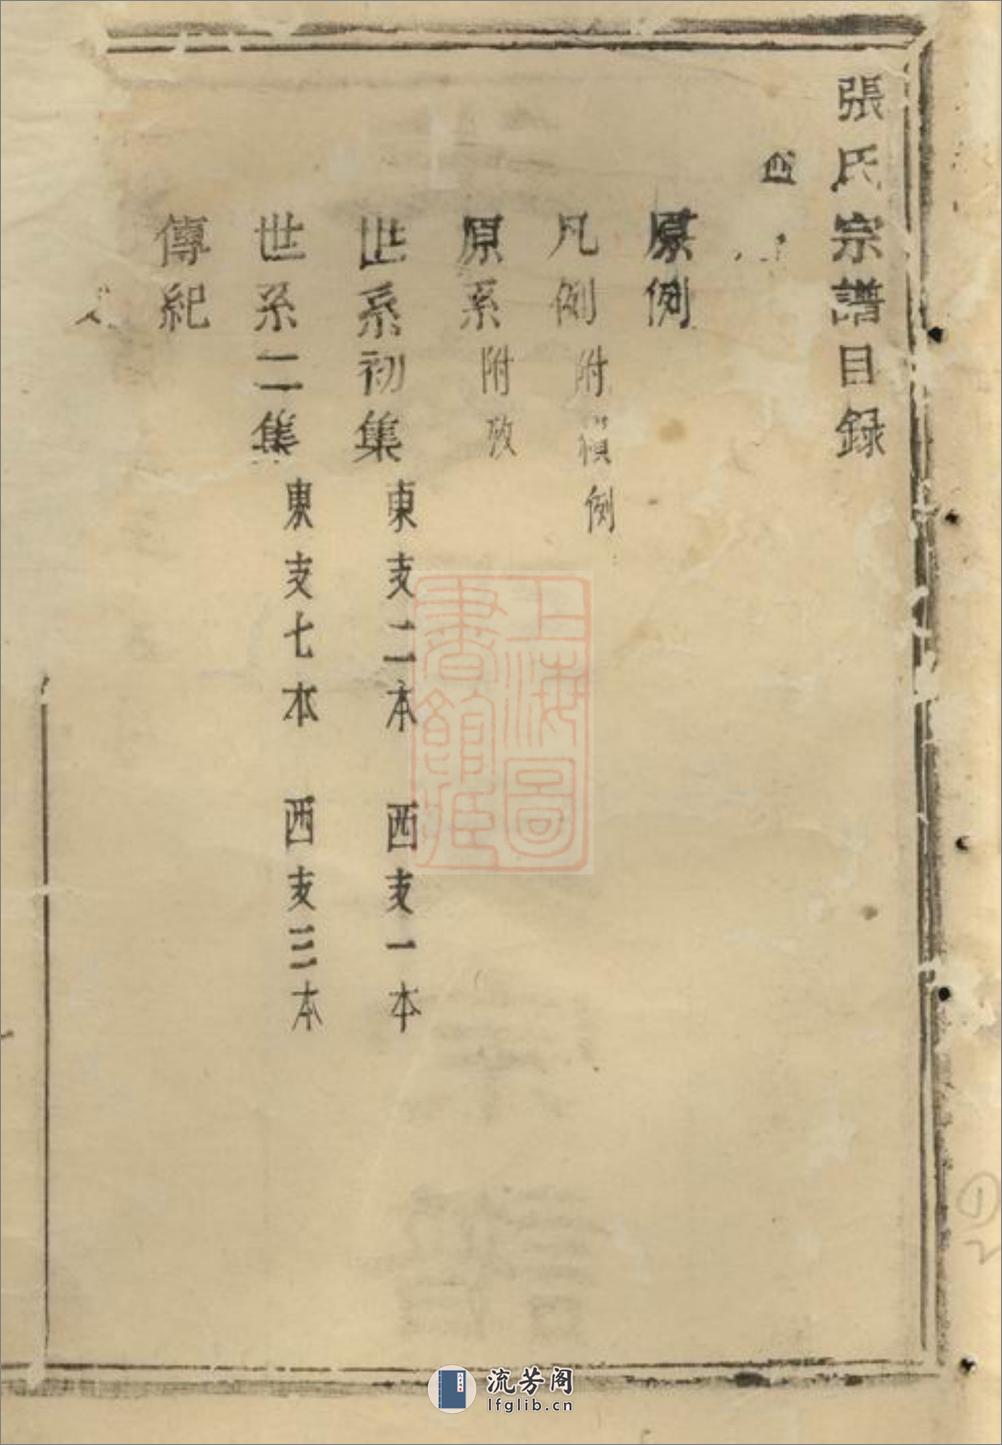 張氏宗譜目録
原例
凡例 附續例
原系 附攷
世系初集 東支二本 西支一本
世系二集 東支七本 西支三本
傳紀
上海圖書館藏
流芳阁
lfglib.cn